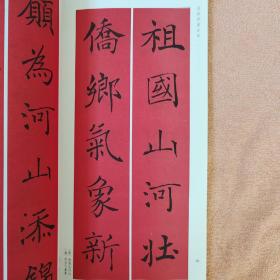 祖國山河壯
僑鄉氣象新
願為河山添錦